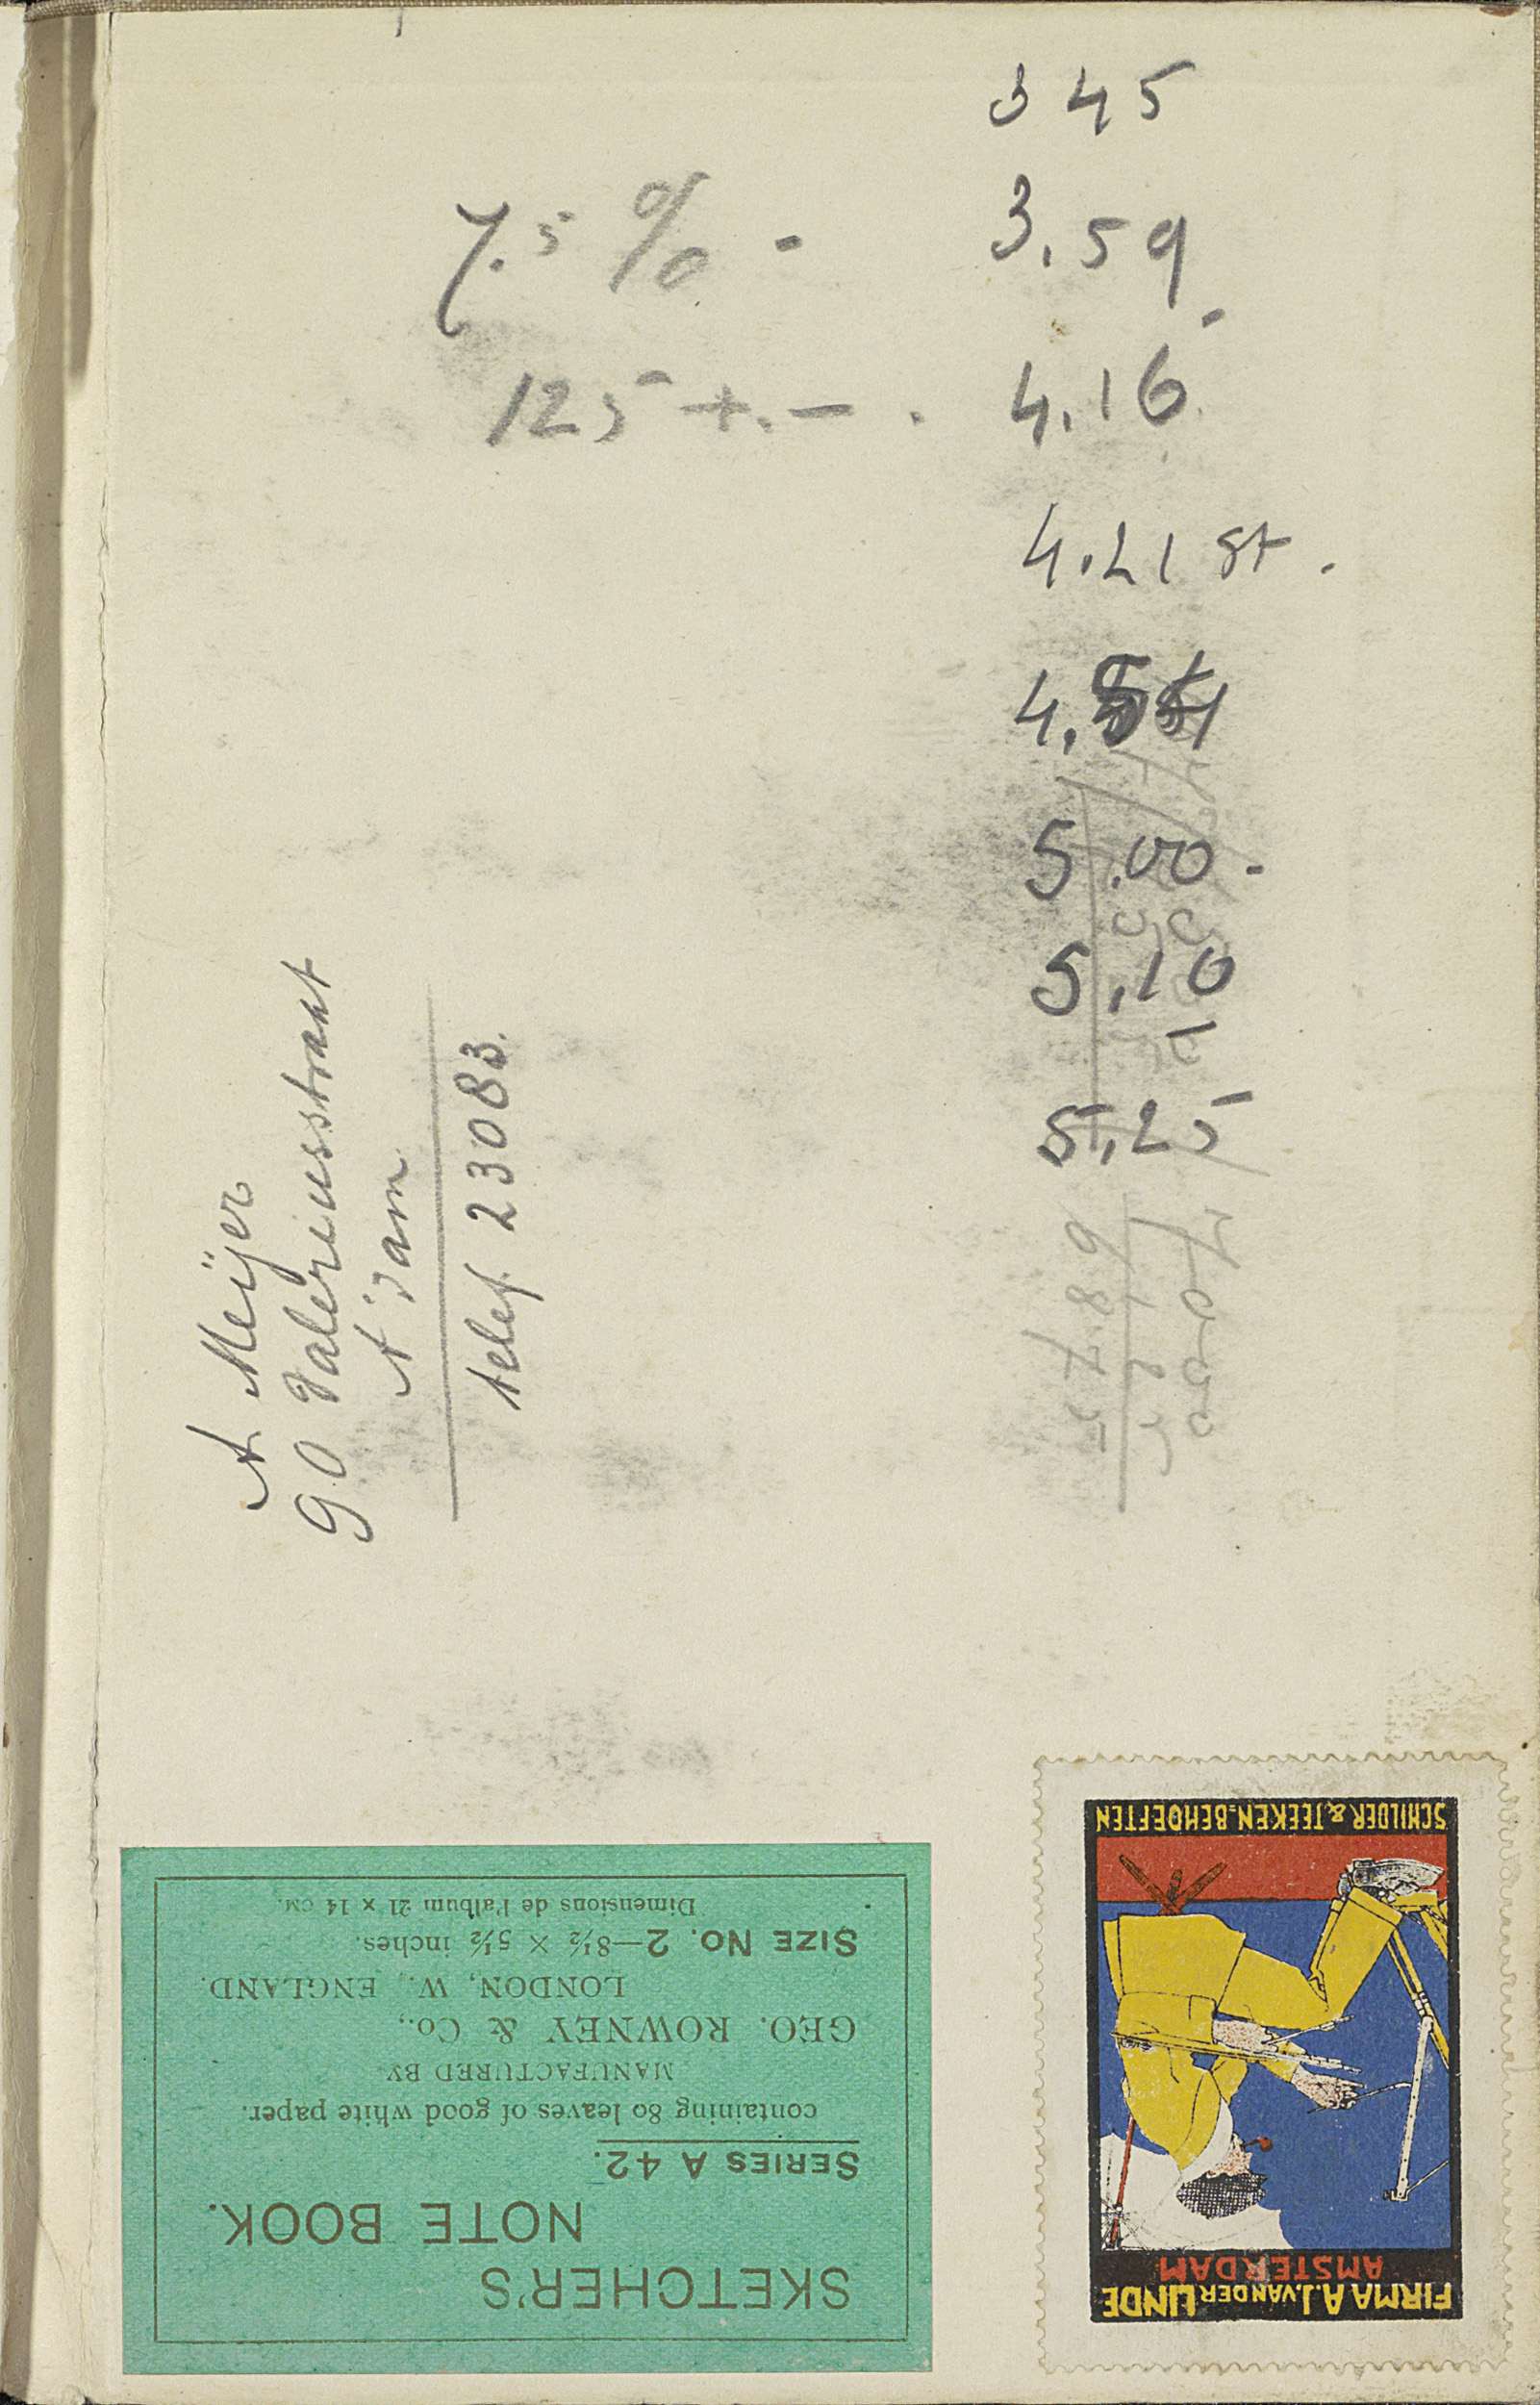 3 45
7.5 % - 3.59
125 +.- . 4.16
4.21 st.
4.
5.00.
5.10
5.25
A Meijer
90 Valeriusstraat
A'dam
telef. 23083.
SKETCHER'S
NOTE BOOK.
SERIES A 42.
containing 80 leaves of good white paper.
MANUFACTURED BY
GEO. ROWNEY & Co.,
LONDON, W., ENGLAND.
SIZE NO. 2—8½ × 5½ inches.
Dimensions de l'album 21 x 14 CM.
FIRMA A.J. VAN DER LINDE
AMSTERDAM
SCHILDER & TEEKEN-BEHOEFTEN